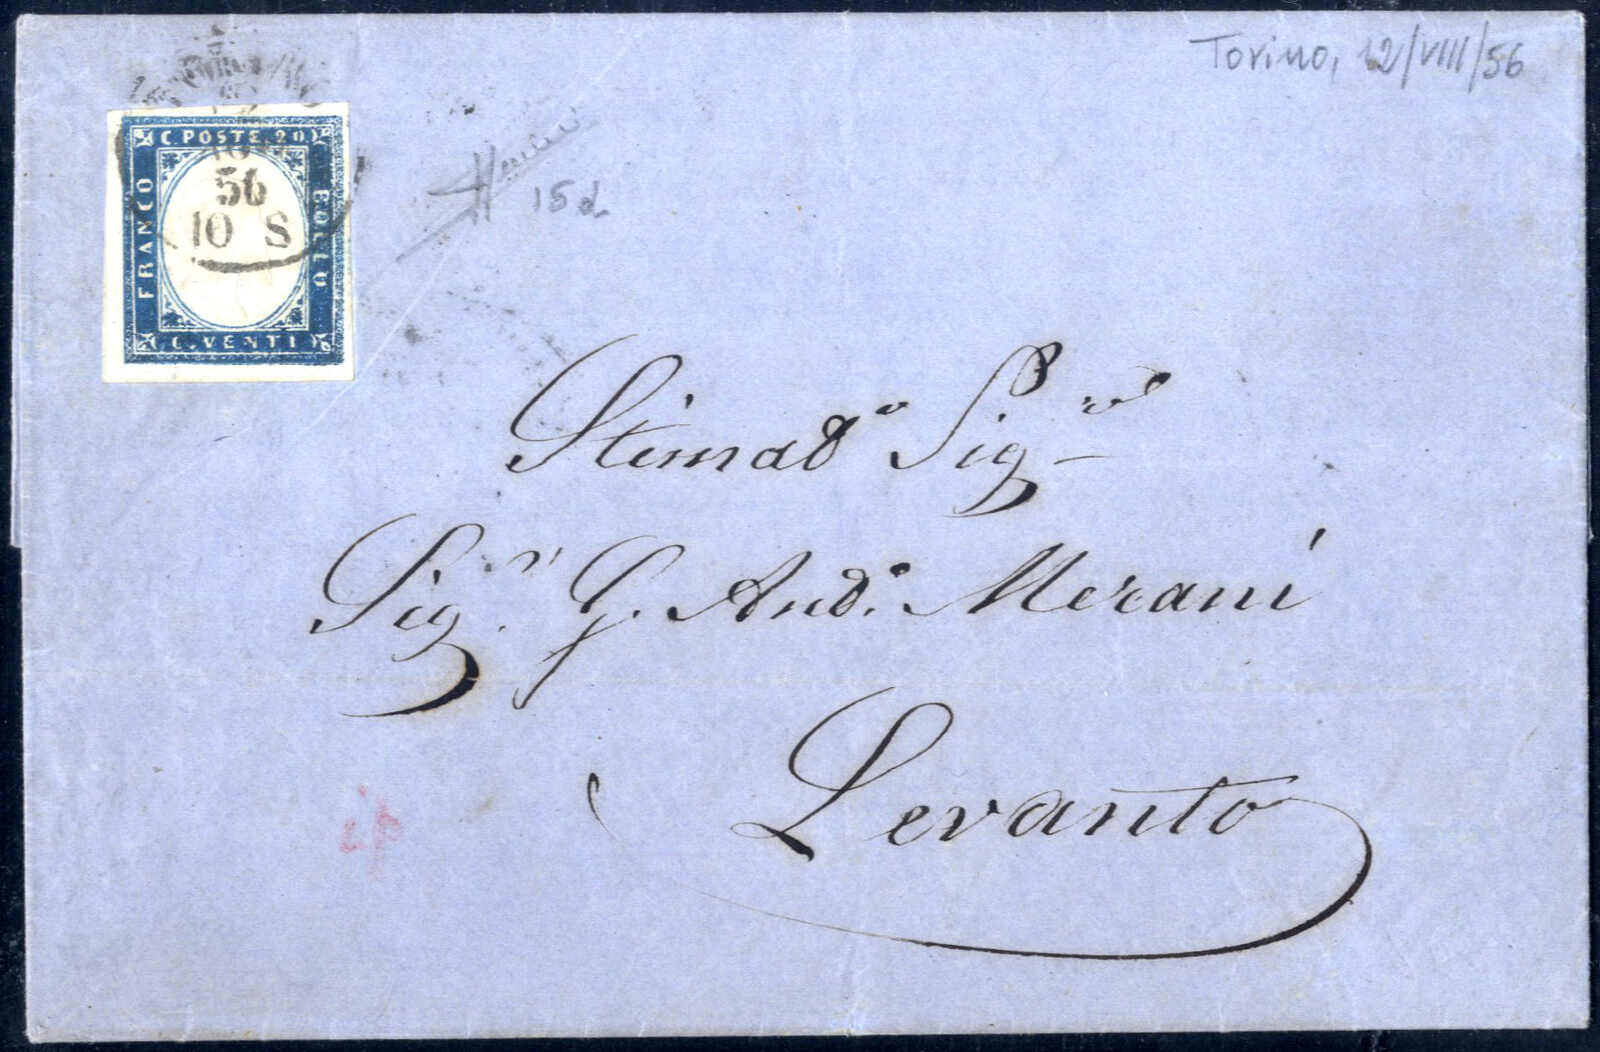 Torino, 12/VIII/56
C. POSTE 20
FRANCO
BOLLO
C. VENTI
56
10 S
15d
Stimado Sigre
Sigr. G. Ando. Merani
Levanto